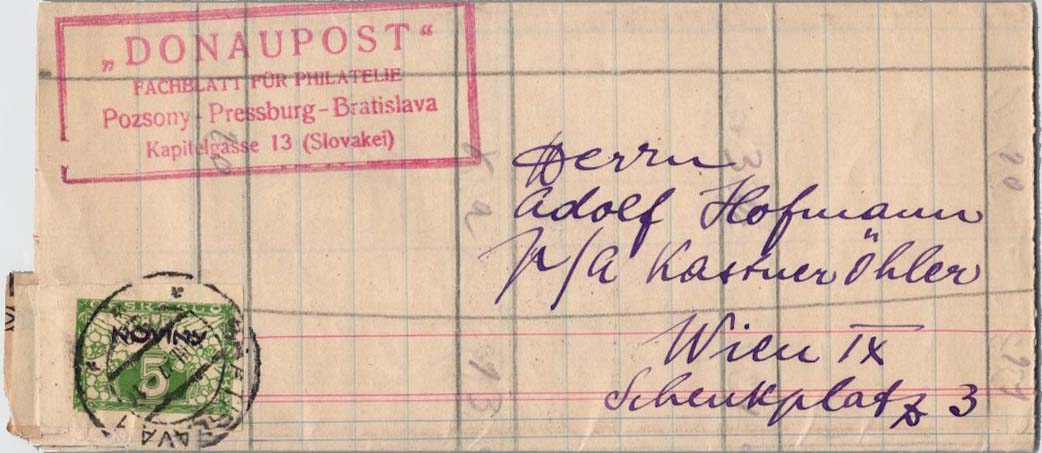 „DONAUPOST“
FACHBLATT FÜR PHILATELIE
Pozsony - Pressburg - Bratislava
Kapitelgasse 13 (Slovakei)
Herrn
Adolf Hofmann
p/A Kastner Öhler
Wien IX
Schenkplatz 3
NOVINY
5